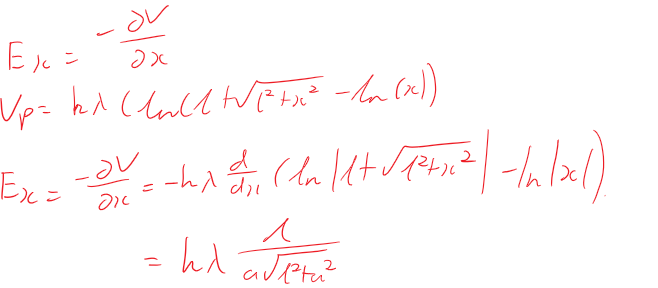 Ex = -∂V/∂x
Vp = kλ (ln(l+√(l²+x²) - ln(x))
Ex = -∂V/∂x = -kλ d/dx (ln|l+√(l²+x²)| - ln|x|)
= kλ l/(a√(l²+a²))